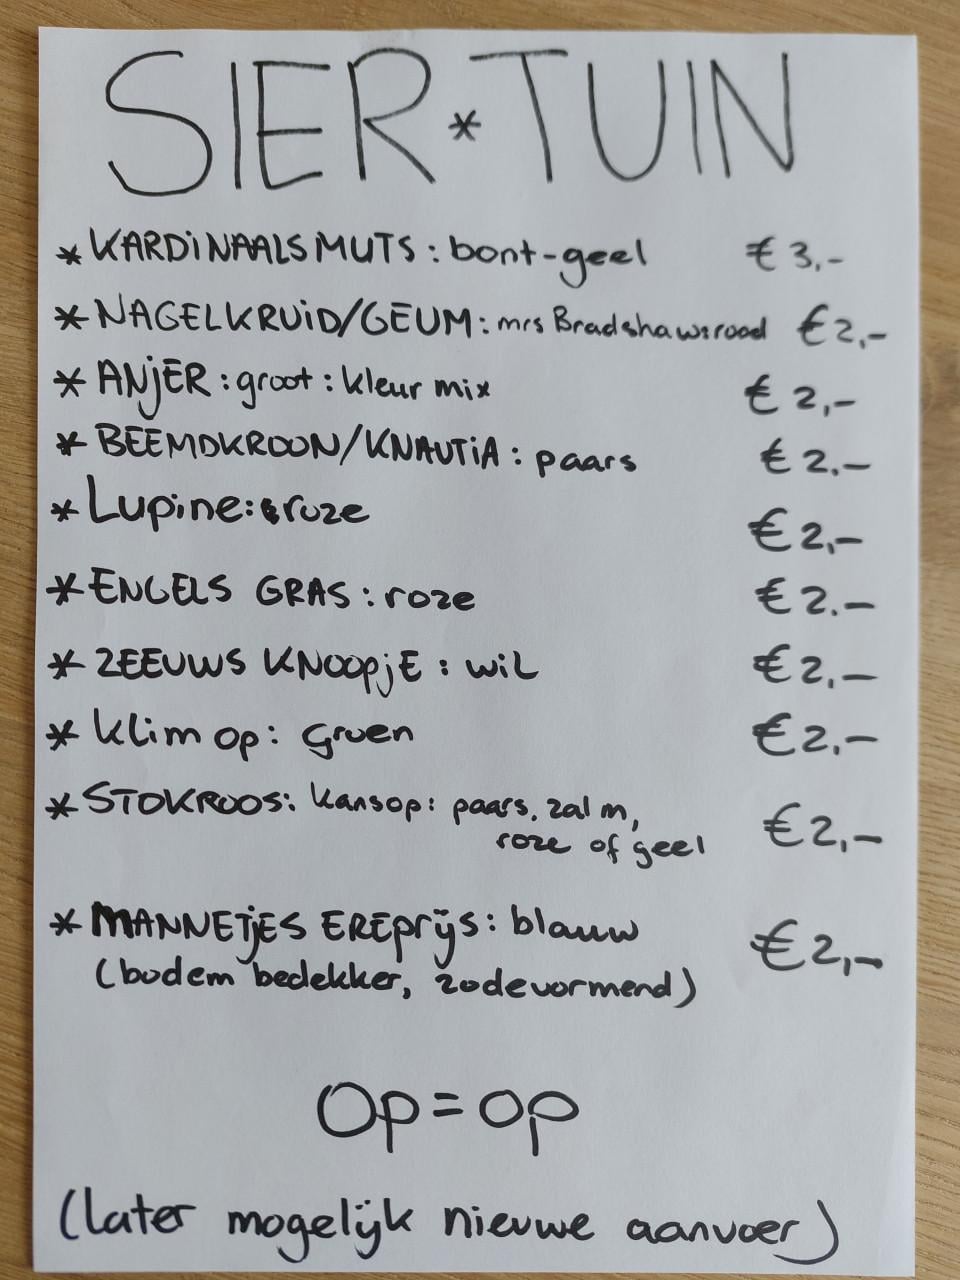 SIER*TUIN
* KARDINAALSMUTS: bont-geel € 3,-
* NAGELKRUID/GEUM: mrs Bradshaw:rood € 2,-
* ANJER: groot: kleur mix € 2,-
* BEEMDKROON/KNAUTIA: paars € 2,-
* Lupine: roze € 2,-
* ENGELS GRAS: roze € 2,-
* ZEEUWS KNOOPJE: wit € 2,-
* Klimop: groen € 2,-
* STOKROOS: Kansop: paars, zalm, € 2,-
roze of geel
* MANNETJES EREPRIJS: blauw € 2,-
(bodem bedekker, zodevormend)
Op=op
(later mogelijk nieuwe aanvoer)